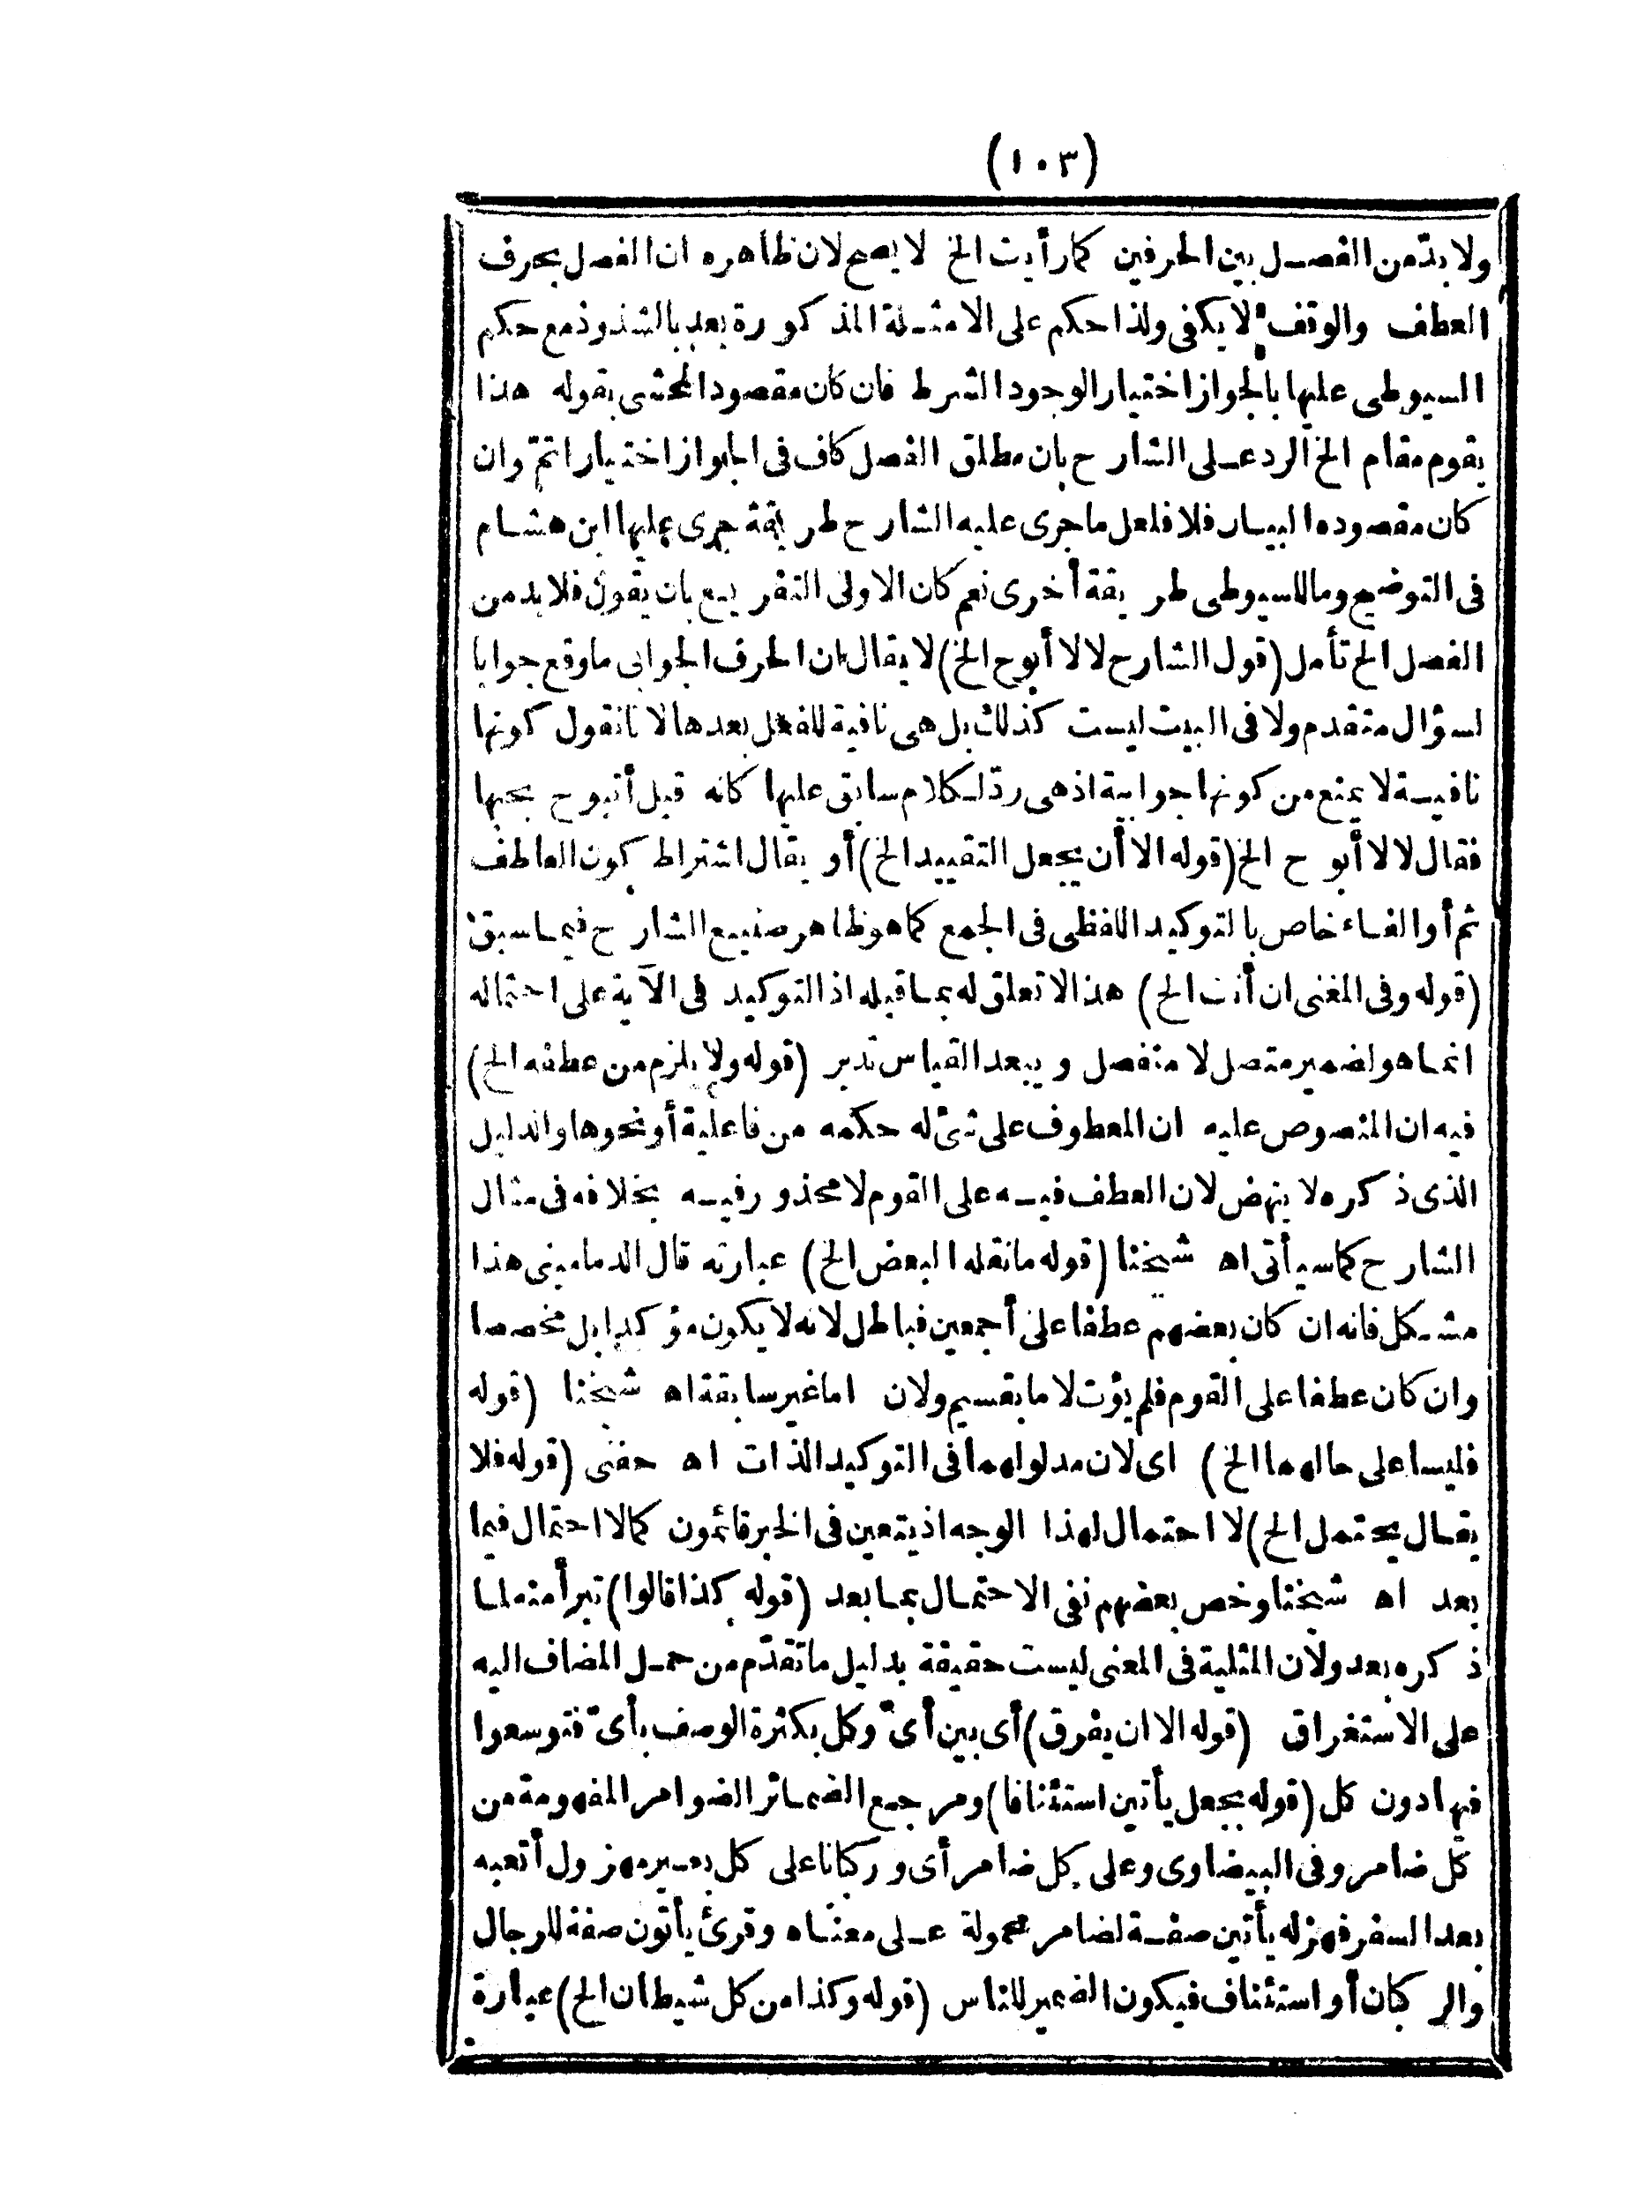 (١٠٣)
ولا بدّ من الفصل بين الحرفين كما رأيت الخ لا يصح لان ظاهره ان الفصل بحرف
العطف والوقف لا يكفى ولذا حكم على الامثلة المذكورة بعد بالشذوذ مع حكم
السيوطى عليها بالجواز اختيار الوجود الشرط فان كان مقصود المحشى بقوله هذا
يقوم مقام الخ الرد على الشارح بان مطلق الفصل كاف فى الجواز اختيارا تمّ وان
كان مقصوده البيان فلا فلعل ما جرى عليه الشارح طريقة جرى عليها ابن هشام
فى التوضيح وما للسيوطى طريقة أخرى نعم كان الاولى التفريع بان يقول فلا بد من
الفصل الخ تأمل (قول الشارح لا لا أبوح الخ) لا يقال ان الحرف الجوابى ما وقع جوابا
لسؤال متقدم ولا فى البيت ليست كذلك بل هى نافية للفعل بعدها لانا نقول كونها
نافية لا يمنع من كونها جوابية اذ هى ردّ لكلام سابق عليها كانه قيل أتبوح بحبها
فقال لا لا أبوح الخ (قوله الا أن يجعل التقييد الخ) أو يقال اشتراط كون العاطف
ثم أو الفاء خاص بالتوكيد اللفظى فى الجمع كما هو ظاهر صنيع الشارح فيما سبق
(قوله وفى المغنى ان أنت الخ) هذا لا تعلق له بما قبله اذ التوكيد فى الآية على احتماله
انما هو لضمير متصل لا منفصل ويبعد القياس تدبر (قوله ولا يلزم من عطفه الخ)
فيه ان المنصوص عليه ان المعطوف على شئ له حكمه من فاعلية أو نحوها والدليل
الذى ذكره لا ينهض لان العطف فيه على القوم لا محذور فيه بخلافه فى مثال
الشارح كما سيأتى اه شيخنا (قوله ما نقله البعض الخ) عبارته قال الدمامينى هذا
مشكل فانه ان كان بعضهم عطفا على أجمعين فباطل لانه لا يكون مؤكدا بل مخصصا
وان كان عطفا على القوم فلم يؤت لا ما بقسيم ولان اما غير سابقة اه شيخنا (قوله
فليسا على حالهما الخ) اى لان مدلولهما فى التوكيد الذات اه حفنى (قوله فلا
يقال يحتمل الخ) لا احتمال لهذا الوجه اذ يتعين فى الخبر قائمون كما لا احتمال فيما
بعد اه شيخنا وخص بعضهم نفى الاحتمال بما بعد (قوله كذا قالوا) تبرأ منه لما
ذكره بعد ولان المثلية فى المعنى ليست حقيقة بدليل ما تقدّم من حمل المضاف اليه
على الاستغراق (قوله الا ان يفرق) أى بين أىّ وكل بكثرة الوصف بأىّ فتوسعوا
فيها دون كل (قوله بجعل يأتين استئنافا) ومرجع الضمائر الضوامر المفهومة من
كل ضامر وفى البيضاوى وعلى كل ضامر أى وركبانا على كل بعير مهزول أتعبه
بعد السفر فهزله يأتين صفة لضامر محمولة على معناه وقرئ يأتون صفة للرجال
والركبان أو استئناف فيكون الضمير للناس (قوله وكذا من كل شيطان الخ) عبارة